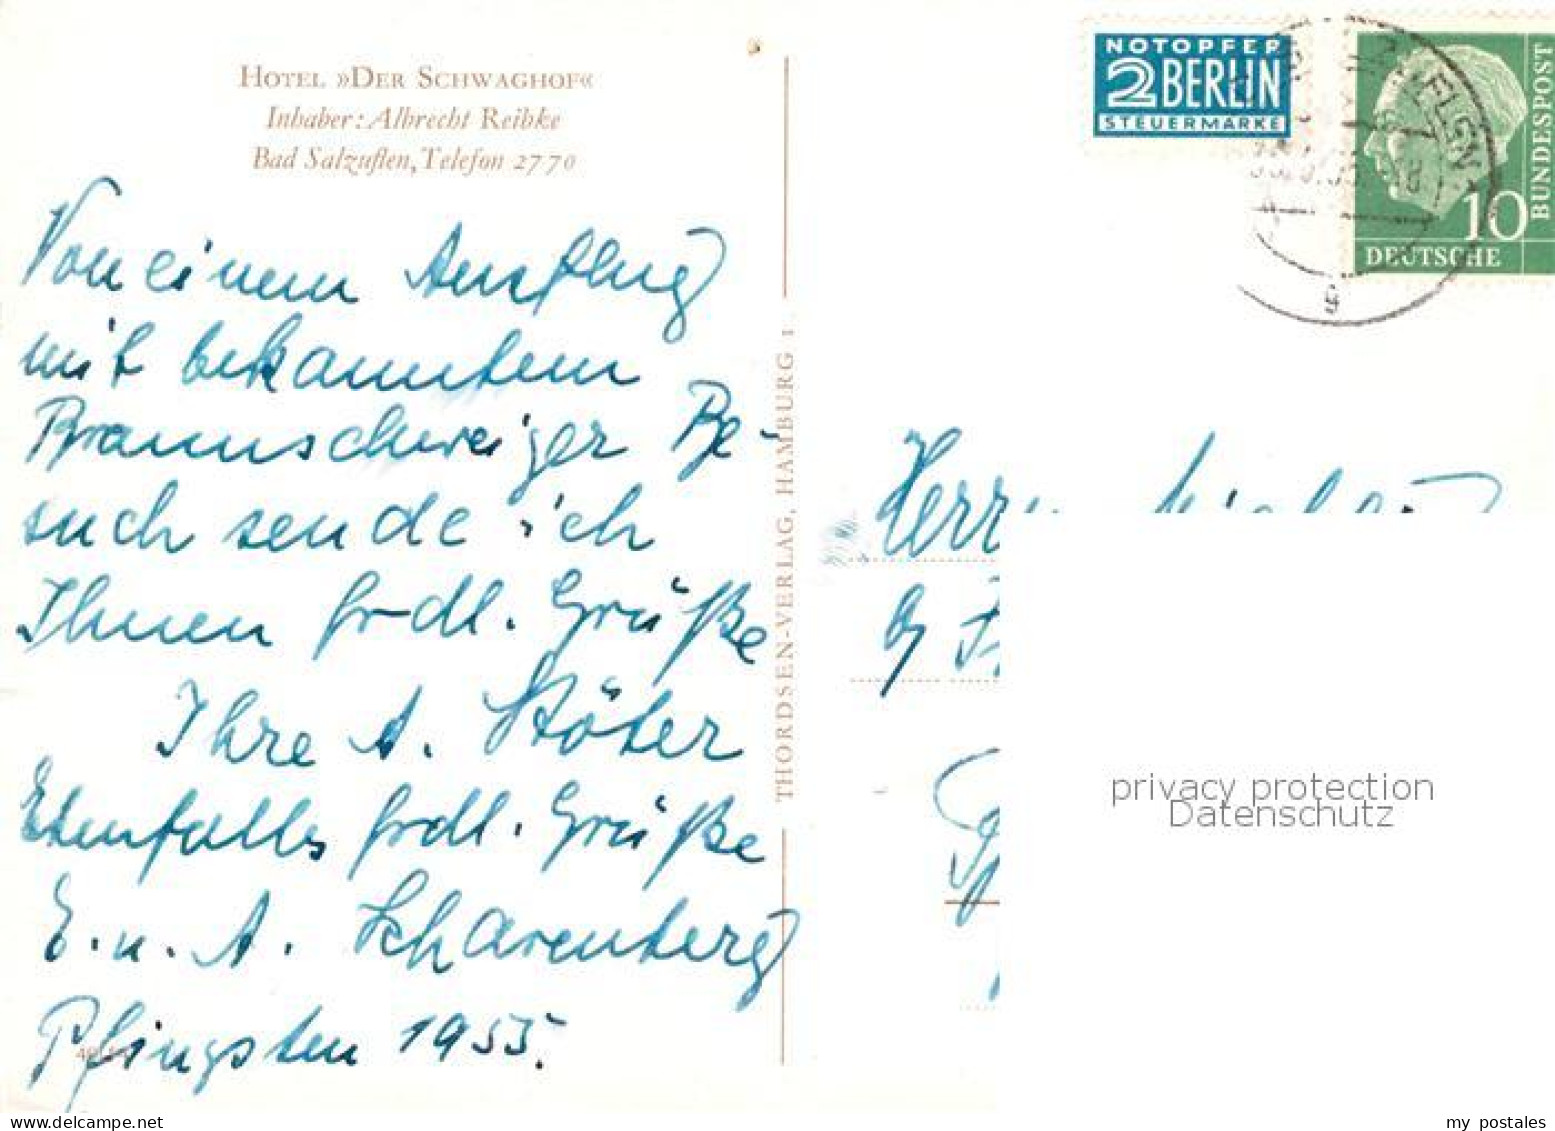 HOTEL »DER SCHWAGHOF«
Inhaber: Albrecht Reibke
Bad Salzuflen, Telefon 2770
Von einem Ausflug
mit bekanntem
Braunschweiger Be-
such sende ich
Ihnen frdl. Grüße
Ihre A. Stöter
Ebenfalls frdl. Grüße
E. u. A. Scharenberg
Pfingsten 1955.
THORDSEN-VERLAG, HAMBURG 1
NOTOPFER
2 BERLIN
STEUERMARKE
10
DEUTSCHE
BUNDESPOST
g
Herrn
privacy protection
Datenschutz
delcampe.net
my_postales